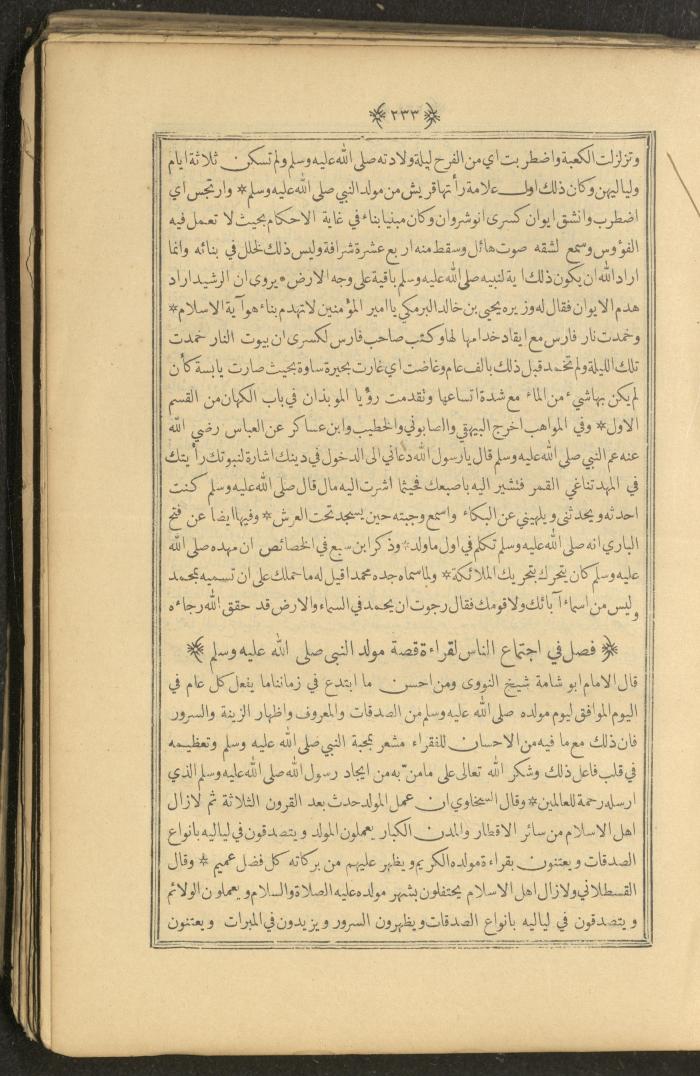 ﴿ ٢٣٣ ﴾
وتزلزلت الكعبة واضطربت اي من الفرح ليلة ولادته صلى الله عليه وسلم ولم تسكن ثلاثة ايام
ولياليهن وكان ذلك اول علامة رأتها قريش من مولد النبي صلى الله عليه وسلم * وارتجس اي
اضطرب وانشق ايوان كسرى انوشروان وكان مبنيا بناء في غاية الاحكام بحيث لا تعمل فيه
الفؤوس وسمع لشقه صوت هائل وسقط منه اربع عشرة شرافة وليس ذلك لخلل في بنائه وانما
اراد الله ان يكون ذلك اية لنبيه صلى الله عليه وسلم باقية على وجه الارض * يروى ان الرشيد اراد
هدم الايوان فقال له وزيره يحيى بن خالد البرمكي يا امير المؤمنين لا تهدم بناء هو آية الاسلام *
وخمدت نار فارس مع ايقاد خدامها لها وكتب صاحب فارس لكسرى ان بيوت النار خمدت
تلك الليلة ولم تخمد قبل ذلك بالف عام وغاضت اي غارت بحيرة ساوة بحيث صارت يابسة كأن
لم يكن بها شيء من الماء مع شدة اتساعها وتقدمت رؤيا الموبذان في باب الكهان من القسم
الاول * وفي المواهب اخرج البيهقي والصابوني والخطيب وابن عساكر عن العباس رضي الله
عنه عم النبي صلى الله عليه وسلم قال يا رسول الله دعاني الى الدخول في دينك اشارة لنبوتك رأيتك
في المهد تناغي القمر فتشير اليه باصبعك فحيثما اشرت اليه مال قال صلى الله عليه وسلم كنت
احدثه ويحدثنى ويلهيني عن البكاء واسمع وجبته حين يسجد تحت العرش * وفيها ايضا عن فتح
الباري انه صلى الله عليه وسلم تكلم في اول ما ولد * وذكر ابن سبع في الخصائص ان مهده صلى الله
عليه وسلم كان يتحرك بتحريك الملائكة * ولما سماه جده محمدا قيل له ما حملك على ان تسميه بمحمد
وليس من اسماء آبائك ولا قومك فقال رجوت ان يحمد في السماء والارض قد حقق الله رجاءه
﴿ فصل في اجتماع الناس لقراءة قصة مولد النبى صلى الله عليه وسلم ﴾
قال الامام ابو شامة شيخ النووى ومن احسن ما ابتدع في زماننا ما يفعل كل عام في
اليوم الموافق ليوم مولده صلى الله عليه وسلم من الصدقات والمعروف واظهار الزينة والسرور
فان ذلك مع ما فيه من الاحسان للفقراء مشعر بمحبة النبي صلى الله عليه وسلم وتعظيمه
في قلب فاعل ذلك وشكر الله تعالى على ما منّ به من ايجاد رسول الله صلى الله عليه وسلم الذي
ارسله رحمة للعالمين * وقال السخاوي ان عمل المولد حدث بعد القرون الثلاثة ثم لا زال
اهل الاسلام من سائر الاقطار والمدن الكبار يعملون المولد ويتصدقون في لياليه بانواع
الصدقات ويعتنون بقراءة مولده الكريم ويظهر عليهم من بركاته كل فضل عميم * وقال
القسطلاني ولا زال اهل الاسلام يحتفلون بشهر مولده عليه الصلاة والسلام ويعملون الولائم
ويتصدقون في لياليه بانواع الصدقات ويظهرون السرور ويزيدون في المبرات ويعتنون